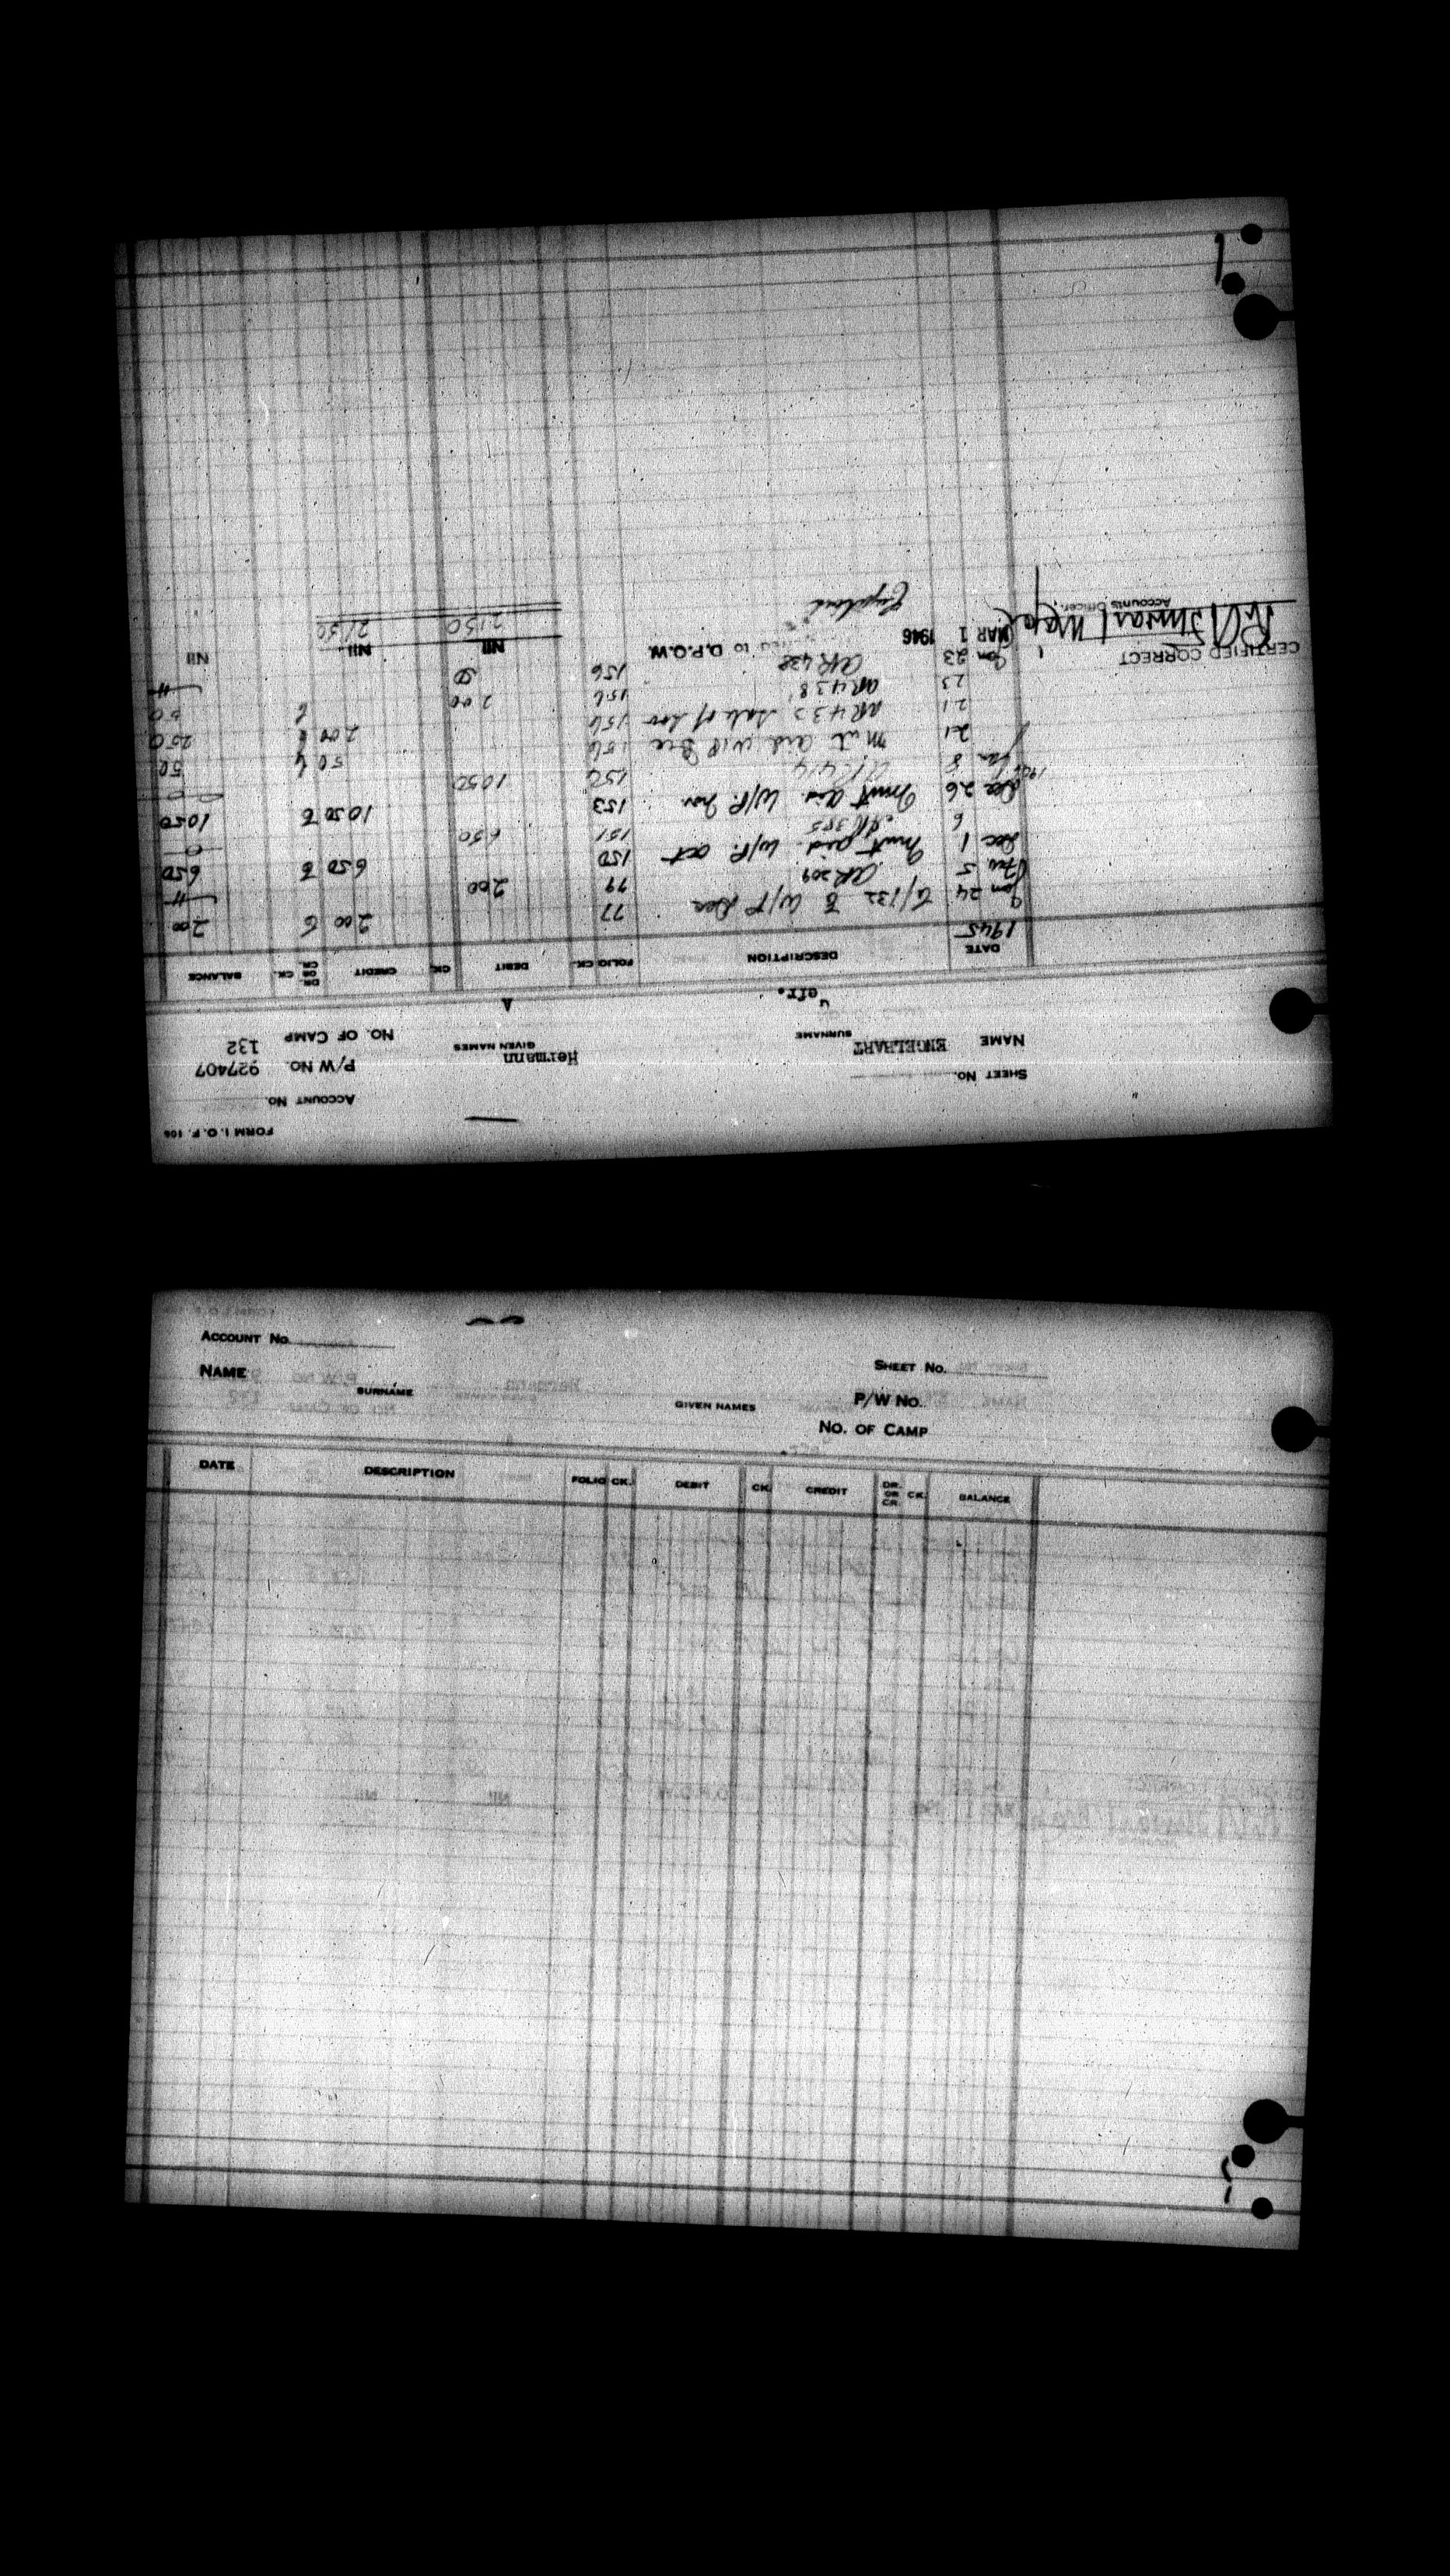 FORM I. O. F. 106
ACCOUNT No.
SHEET No. P/W No. 927407
NAME ENGELHART Hermann
SURNAME GIVEN NAMES No. OF CAMP 132
Gefr. A
DATE DESCRIPTION FOLIO CK. DEBIT CK. CREDIT DR. OR CR. CK. BALANCE
1945
Jan 24 G/132 E W/P Dec 77 2 00 2 00
5 AR 209 99 2 00
Dec 1 Mut aid W/P. Oct 150 6 50 6 50
6 AR 385 151 6 50
Dec 26 Mut aid W/P. Nov 153 10 50 10 50
Jan 8 10 50
21 Mut aid W/P Dec 156 50 50
21 Sale of 156 2 00 2 50
23 AR 438 156 2 00 50
Jan 23 AR 438 156 50
MAR 1 1946 to D.P.O.W. Nil Nil Nil
England 21 50 21 50
CERTIFIED CORRECT
Accounts Officer.
ACCOUNT No.
SHEET No.
NAME
SURNAME GIVEN NAMES P/W No.
No. OF CAMP
DATE DESCRIPTION FOLIO CK. DEBIT CK. CREDIT DR. OR CR. CK. BALANCE